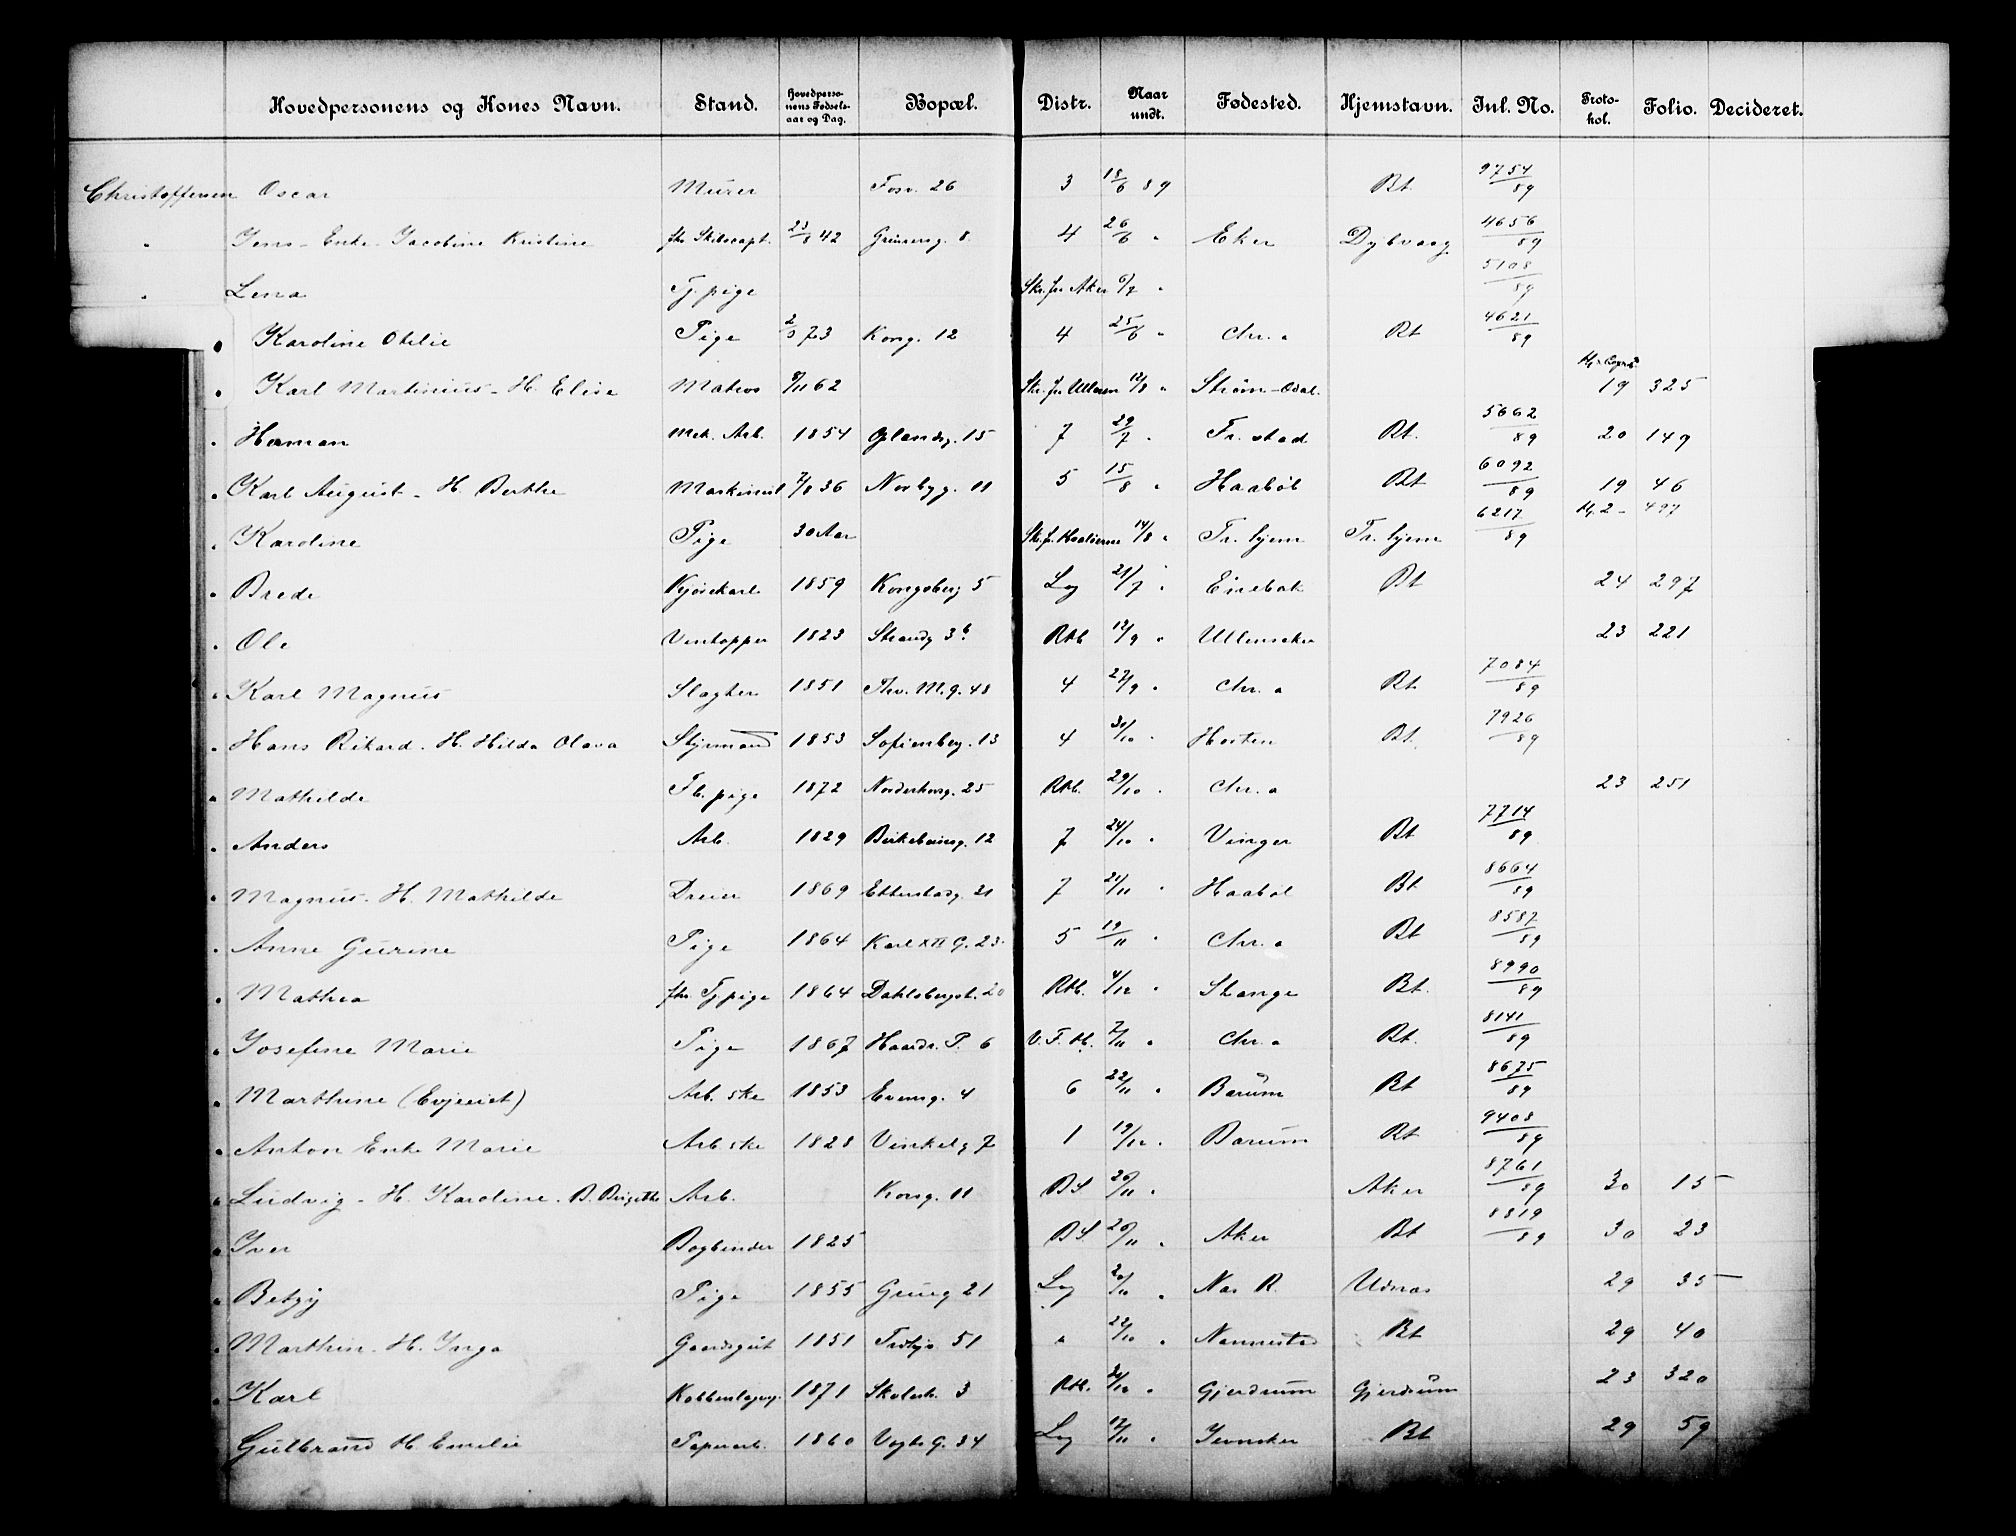 Hovedpersonens og Kones Navn. Stand. Hovedpersonens Fødselsaar og Dag. Bopæl. Distr. Naar undt. Fødested. Hjemstavn. Inl. No. Protokol. Folio. Decideret.
Christoffersen Oscar Murer Fosv. 26 3 18/6 89 Bt 9754/89
" Jens - Enke Jacobine Kristine fhv Skibscapt. 23/8 42 Grünersg. 8 4 26/6 " Eker Dybvaag 4656/89
" Lena Tj. pige Skr. fr Aker 6/7 " 5108/89
" Karoline Otilie Pige 2/3 73 Kong. 12 4 25/6 " Chr. a Bt 4621/89
" Karl Martinius - H. Elise Matros 8/11 62 Skr. fr Ullern 12/8 " Strøm - Odal. 19 325
" Herman Mek. Arb. 1854 Øplandsg. 15 7 29/7 " Fr. stad Bt. 5662/89 20 149
" Karl August - H. Berthe Maskinist 7/8 36 Norbyg. 11 5 15/8 " Haabøl Bt 6092/89 19 46
" Karoline Pige 30 Aar 14/8 " Tr. hjem Tr. hjem 6217/89 Kr. 2 - 497
" Brede Kjørekarl 1859 Kongsberg 5 Lg 21/7 " Enebak Bt 24 297
" Ole 1823 Strandg 3b Rhb 12/9 " Ullensaker 23 221
" Karl Magnus Slagter 1851 Thv. M. g. 48 4 27/9 " Chr. a Bt 7084/89
" Hans Rikard. H. Hilda Olava Styrmand 1853 Sofienberg. 13 4 31/10 " Horten Bt. 7926/89
" Mathilde Fb. pige 1872 Norderhovg. 25 Rhb. 29/10 " Chr. a 23 251
" Anders Arb. 1829 Birkebeinerg. 12 7 24/10 " Vinger Bt 7714/89
" Magnus. H. Mathilde Dreier 1869 Etterstadg. 21 7 21/11 " Haabøl Bt 8664/89
" Anne Gurine Pige 1864 Karl XII G. 23. 5 19/11 " Chr. a Bt 8587/89
" Mathea fhv Tj pige 1864 Dahlsbergst. 20 Rhb. 4/12 " Stange Bt. 8990/89
" Josefine Marie Pige 1867 Haardr. P. 6 V. F. H. 7/11 " Chr. a Bt. 8141/89
" Marthine (Evjeeiet) Arb. ske 1853 Evensg. 4 6 22/11 " Barum Bt 8675/89
" Anton Enke Marie Arb ske 1828 Vinkelg 7 1 19/12 " Barum Bt 9408/89
" Ludvig - H. Karoline. B. Birgitthe Arb. Kong. 11 BS 20/11 " Aker 8761/89 30 15
" Iver Bogbinder 1825 BS. 20/11 " Aker Bt 8819/89 30 23
" Betzy Pige 1855 Grüng 21 Lg 2/10 " Nas R. Udnas 29 35
" Marthin. H. Inga Gaardsgut 1851 Trdhjv. 51 " 22/10 " Nannestad Bt 29 40
" Karl 1871 Skolest. 3 Rhb. Gjerdrum Gjerdrum 23 320
Gulbrand H. Emilie Papirarb. 1860 Vogts G. 34 Lg 17/11 " Jevnaker Bt 29 59